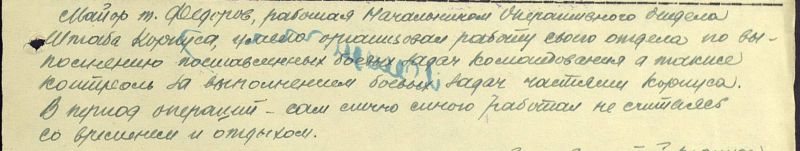 Майор т. Федоров, работая Начальником Оперативного отдела
Штаба Корпуса, умело организовал работу своего отдела по вы-
полнению поставленных боевых задач командования а также
контроль за выполнением боевых задач частями корпуса.
В период операций – сам лично много работал не считаясь
со временем и отдыхом.